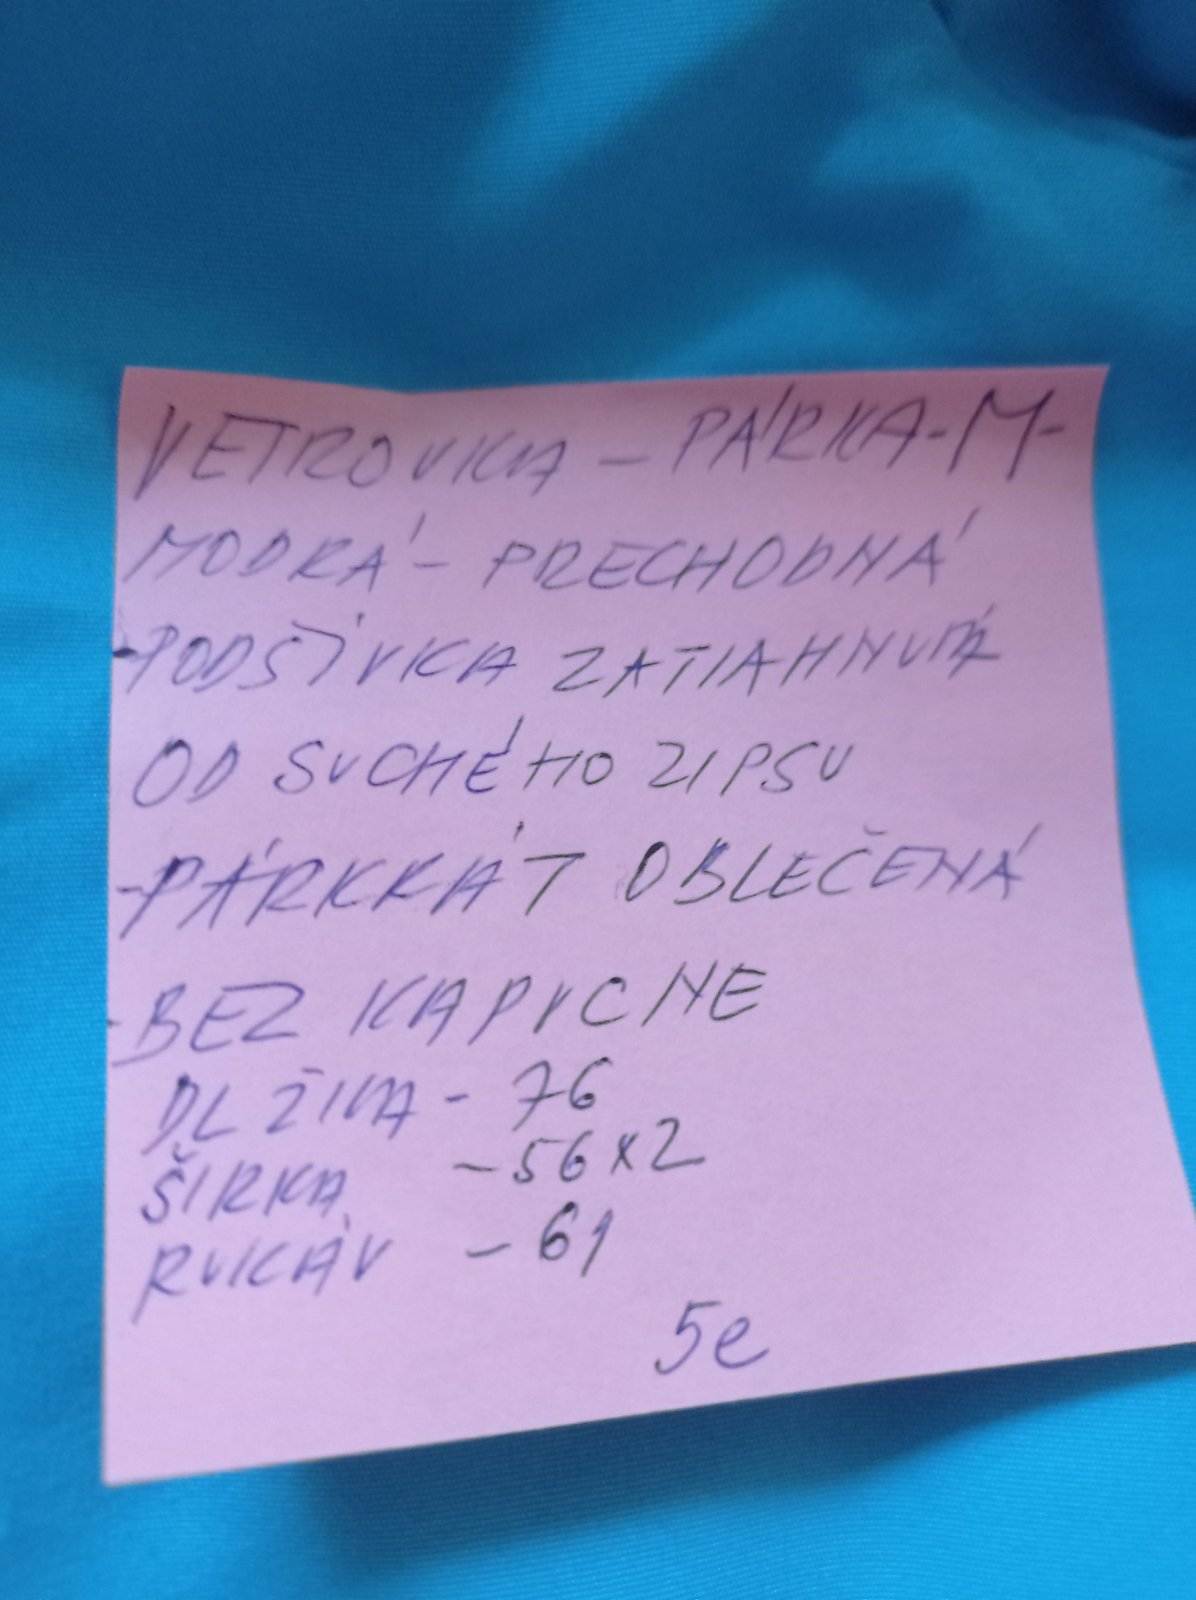 VETROVKA - PÁRKA - M -
MODRÁ - PRECHODNÁ
- PODŠÍVKA ZATIAHNUTÁ
OD SUCHÉHO ZIPSU
- PÁRKKÁT OBLEČENÁ
- BEZ KAPUCNE
DLŽIKA - 76
ŠIRKA - 56x2
RUKÁV - 61
5e